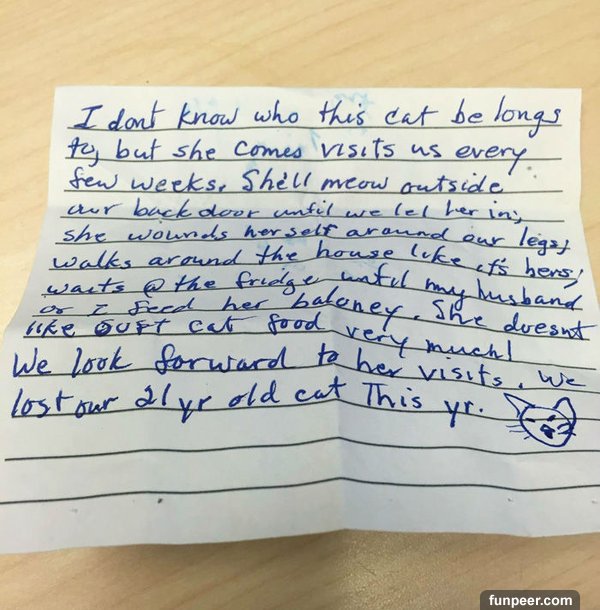 I dont know who this cat be longs
to, but she comes visits us every
few weeks. She'll meow outside
our back door until we let her in;
she wounds herself around our legs;
walks around the house like it's hers;
waits @ the fridge until my husband
or I feed her baloney. She doesnt
like OUR cat food very much!
We look forward to her visits. We
lost our 21 yr old cat This yr.
funpeer.com